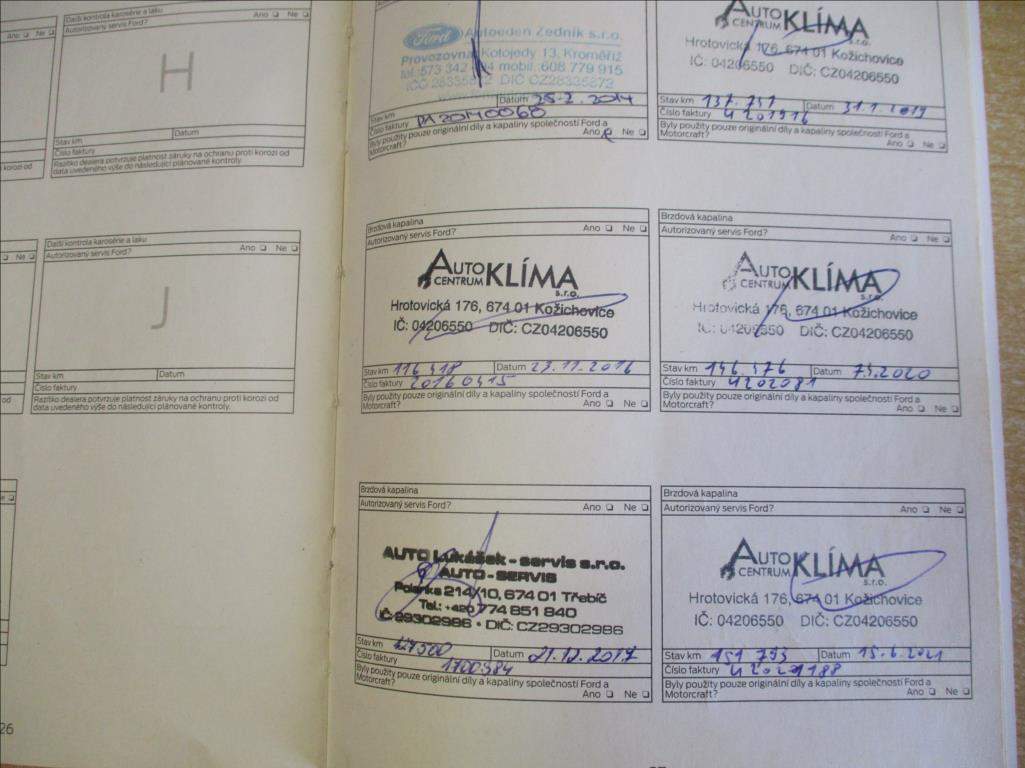 Ano ❑ Ne ❑
korozi od
Ne ❑
od
26
Další kontrola karosérie a laku
Autorizovaný servis Ford? Ano ❑ Ne ❑
H
Stav km Datum
Číslo faktury
Razítko dealera potvrzuje platnost záruky na ochranu proti korozi od
data uvedeného výše do následující plánované kontroly.
Další kontrola karosérie a laku
Autorizovaný servis Ford? Ano ❑ Ne ❑
J
Stav km Datum
Číslo faktury
Razítko dealera potvrzuje platnost záruky na ochranu proti korozi od
data uvedeného výše do následující plánované kontroly.
Ford Autoeden Zedník s.r.o.
Provozovna Kotojedy 13, Kroměříž
mobil: 608 779 915
DIČ CZ28335872
Stav km Datum 25-2. 2014
Číslo faktury PA20140068
Byly použity pouze originální díly a kapaliny společnosti Ford a
Motorcraft? Ano Ne ❑
AUTO KLÍMA
CENTRUM s.r.o.
Hrotovická 176, 674 01 Kožichovice
IČ: 04206550 DIČ: CZ04206550
Stav km 137.751 Datum 31.1.2019
Číslo faktury 4201916
Byly použity pouze originální díly a kapaliny společnosti Ford a
Motorcraft? Ano ❑ Ne ❑
Brzdová kapalina
Autorizovaný servis Ford? Ano ❑ Ne ❑
AUTO KLÍMA
CENTRUM s.r.o.
Hrotovická 176, 674 01 Kožichovice
IČ: 04206550 DIČ: CZ04206550
Stav km 116.418 Datum 23.11.2016
Číslo faktury 20160415
Byly použity pouze originální díly a kapaliny společnosti Ford a
Motorcraft? Ano ❑ Ne ❑
Brzdová kapalina
Autorizovaný servis Ford? Ano ❑ Ne ❑
AUTO KLÍMA
CENTRUM s.r.o.
Hrotovická 176, 674 01 Kožichovice
IČ: 04206550 DIČ: CZ04206550
Stav km 146.376 Datum
Číslo faktury 4202081
Byly použity pouze originální díly a kapaliny společnosti Ford a
Motorcraft? Ano ❑ Ne ❑
Brzdová kapalina
Autorizovaný servis Ford? Ano ❑ Ne ❑
AUTO Lukášek - servis s.r.o.
AUTO - SERVIS
Polanka 214/10, 674 01 Třebíč
Tel.: +420 774 851 840
IČ: 29302986 • DIČ: CZ29302986
Stav km Datum 21.12.2017
Číslo faktury 1700984
Byly použity pouze originální díly a kapaliny společnosti Ford a
Motorcraft? Ano ❑ Ne ❑
Brzdová kapalina
Autorizovaný servis Ford? Ano ❑ Ne ❑
AUTO KLÍMA
CENTRUM s.r.o.
Hrotovická 176, 674 01 Kožichovice
IČ: 04206550 DIČ: CZ04206550
Stav km 151 793 Datum 15.6.2021
Číslo faktury
Byly použity pouze originální díly a kapaliny společnosti Ford a
Motorcraft? Ano ❑ Ne ❑